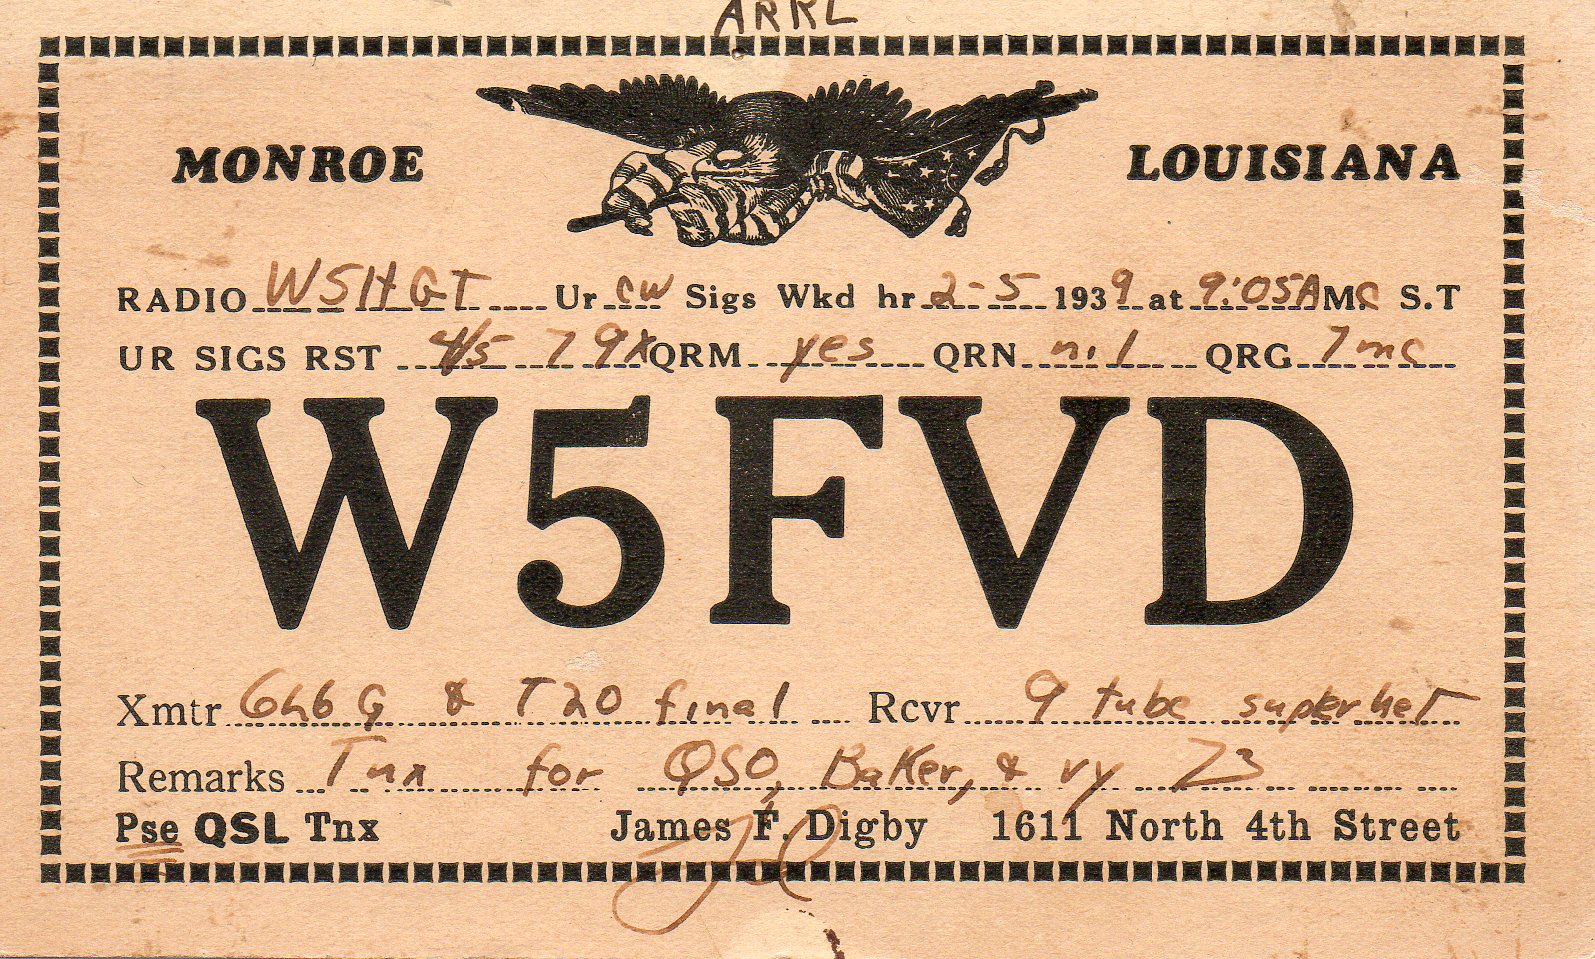 ARRL
MONROE LOUISIANA
RADIO W5HGT Ur CW Sigs Wkd hr 2-5 1939 at 9:05AM C S.T
UR SIGS RST 4/5 79X QRM yes QRN nil QRG 7mc
W5FVD
Xmtr 6L6G & T20 final Rcvr 9 tube superhet
Remarks Tnx for QSO, Baker, & vy 73
Pse QSL Tnx James F. Digby 1611 North 4th Street